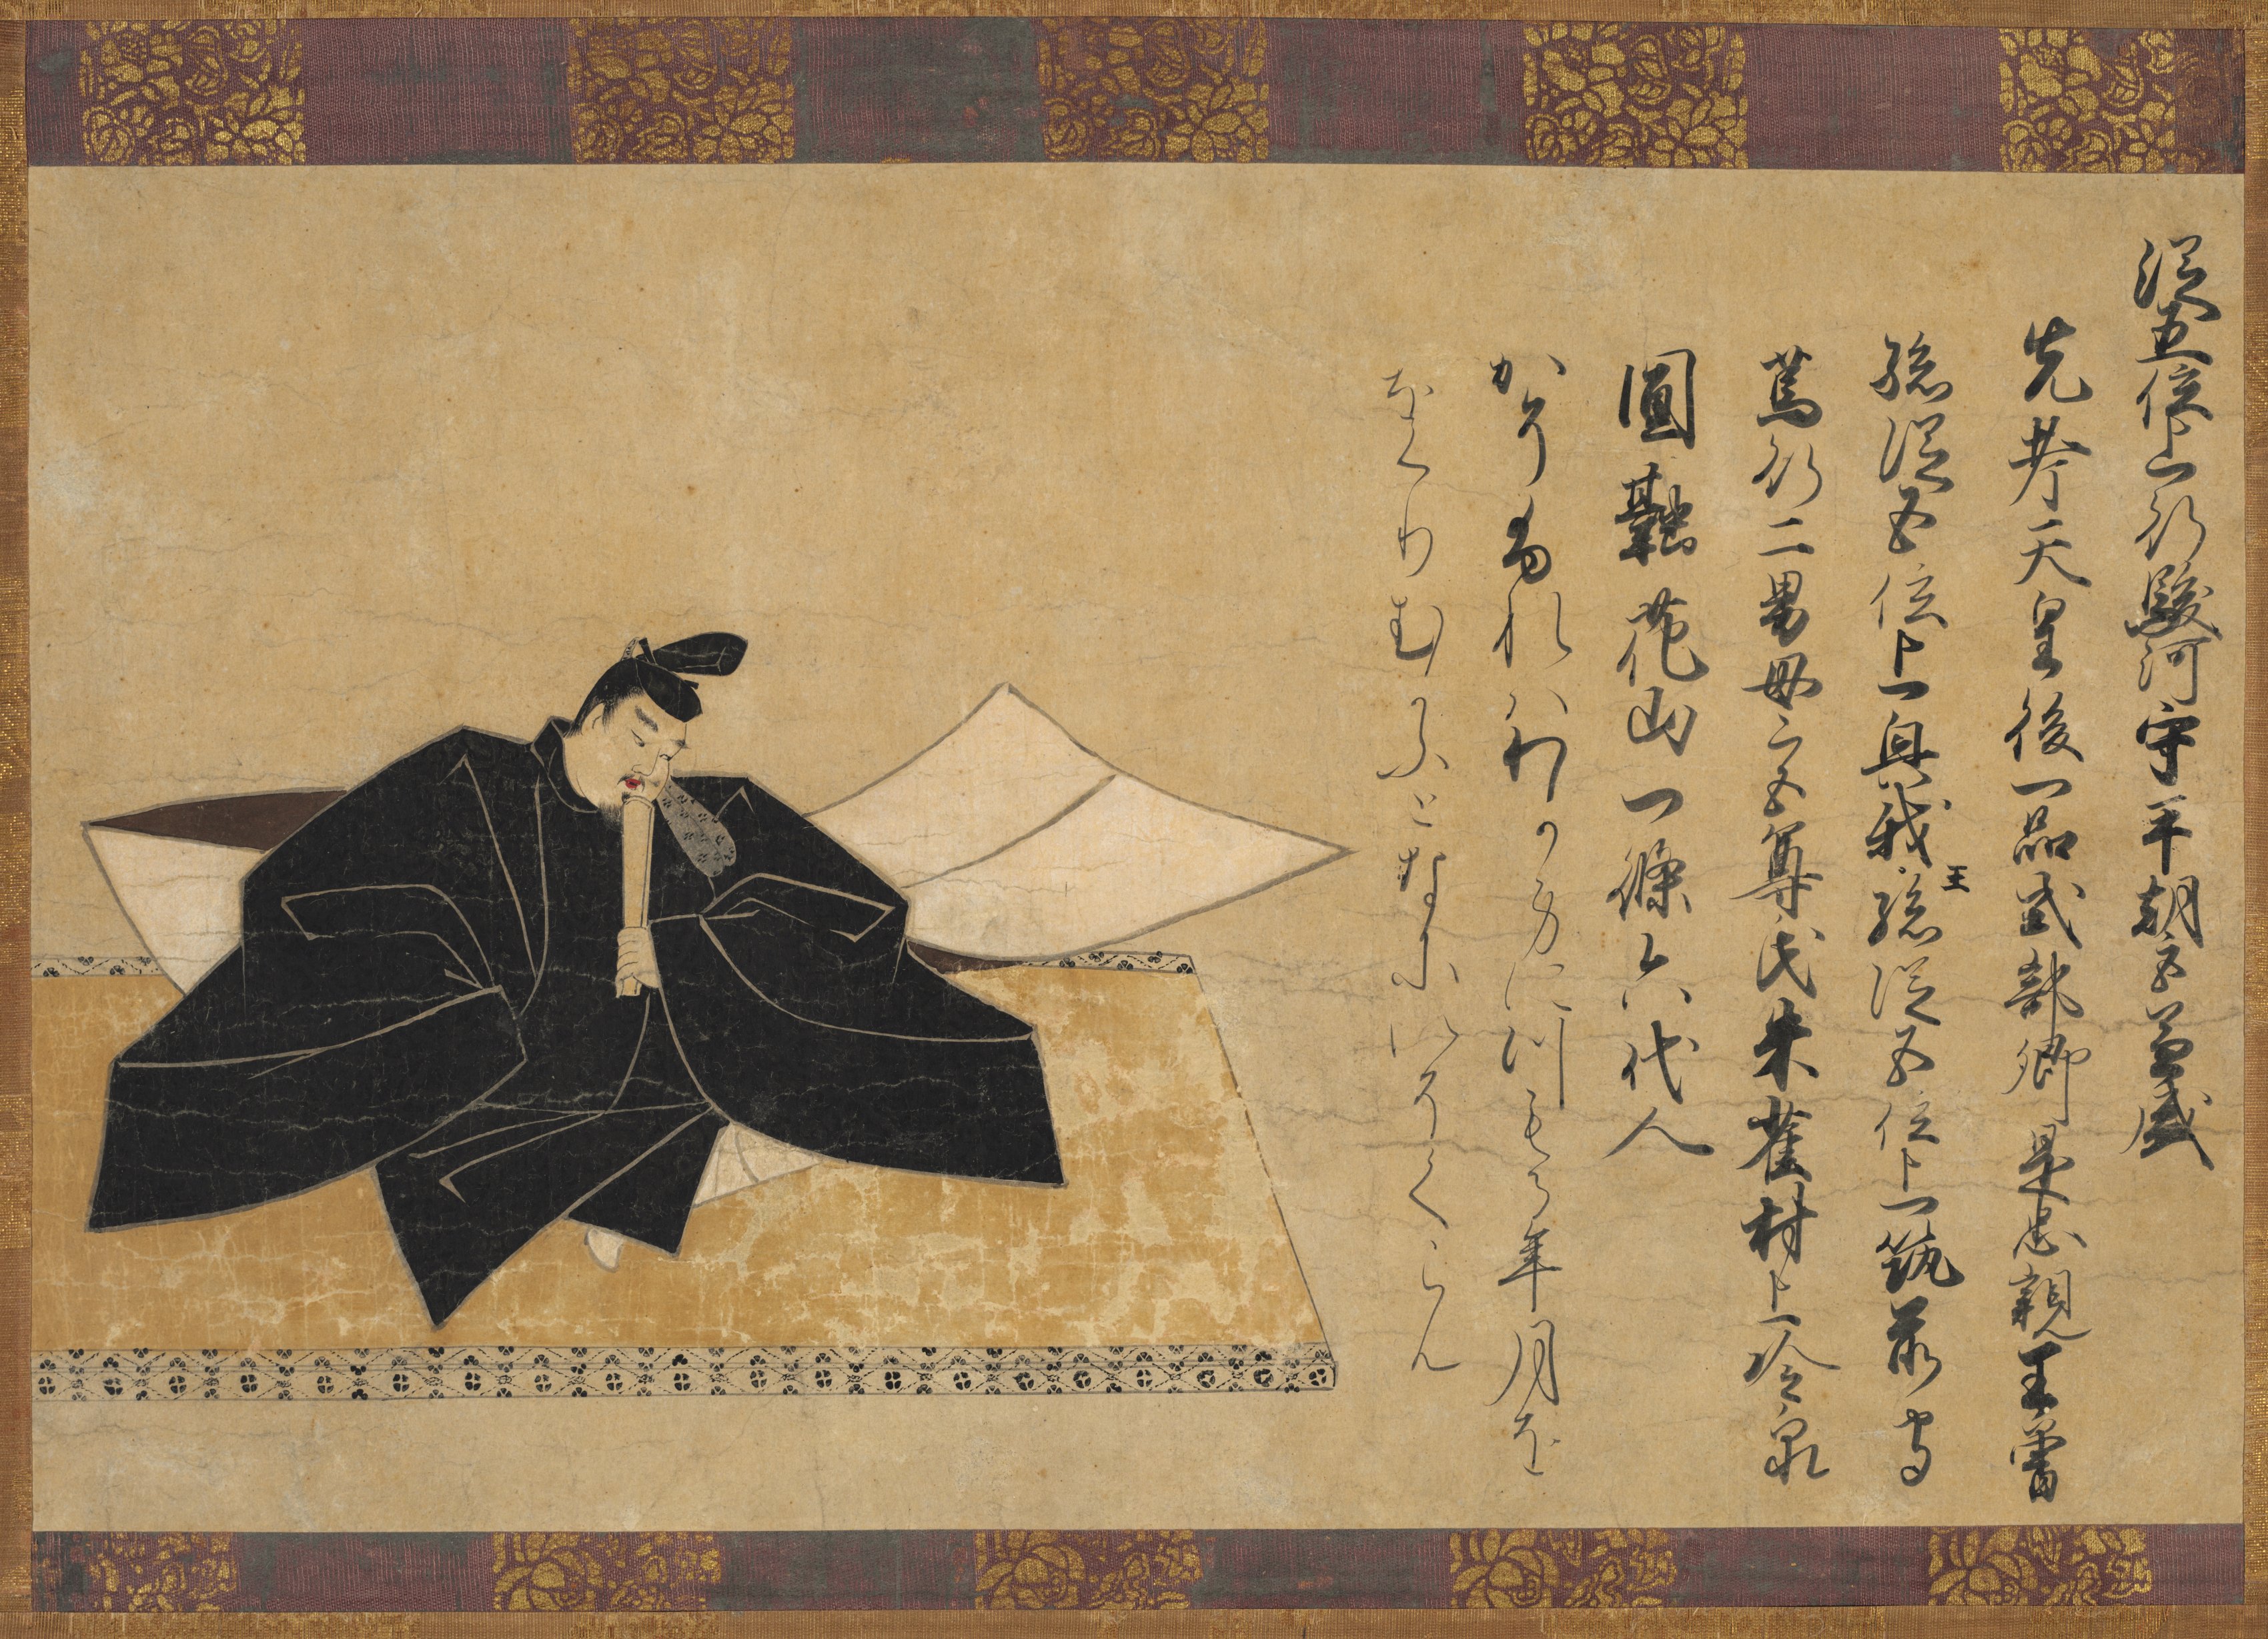 従五位上行駿河守平朝臣兼盛
光孝天皇後一品式部卿是忠親王曾
孫従五位上興我王孫従五位上筑前守
篤行二男母 朱雀村上冷泉
圓融花山一條六代人
かそふれはわか身につもる年月を
をくりむかふとなにいそくらん